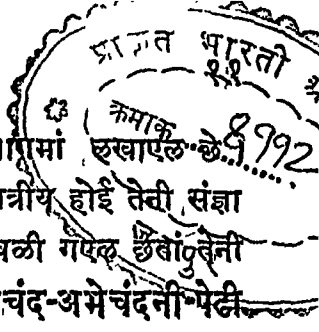 प्राकृत भारती
११
क्रमांक 8992
लखाएल छे
त्रीय होई तेनी संज्ञा
वळी गएल छेतां तेनी
चंद-अमेचंदनी पेढी